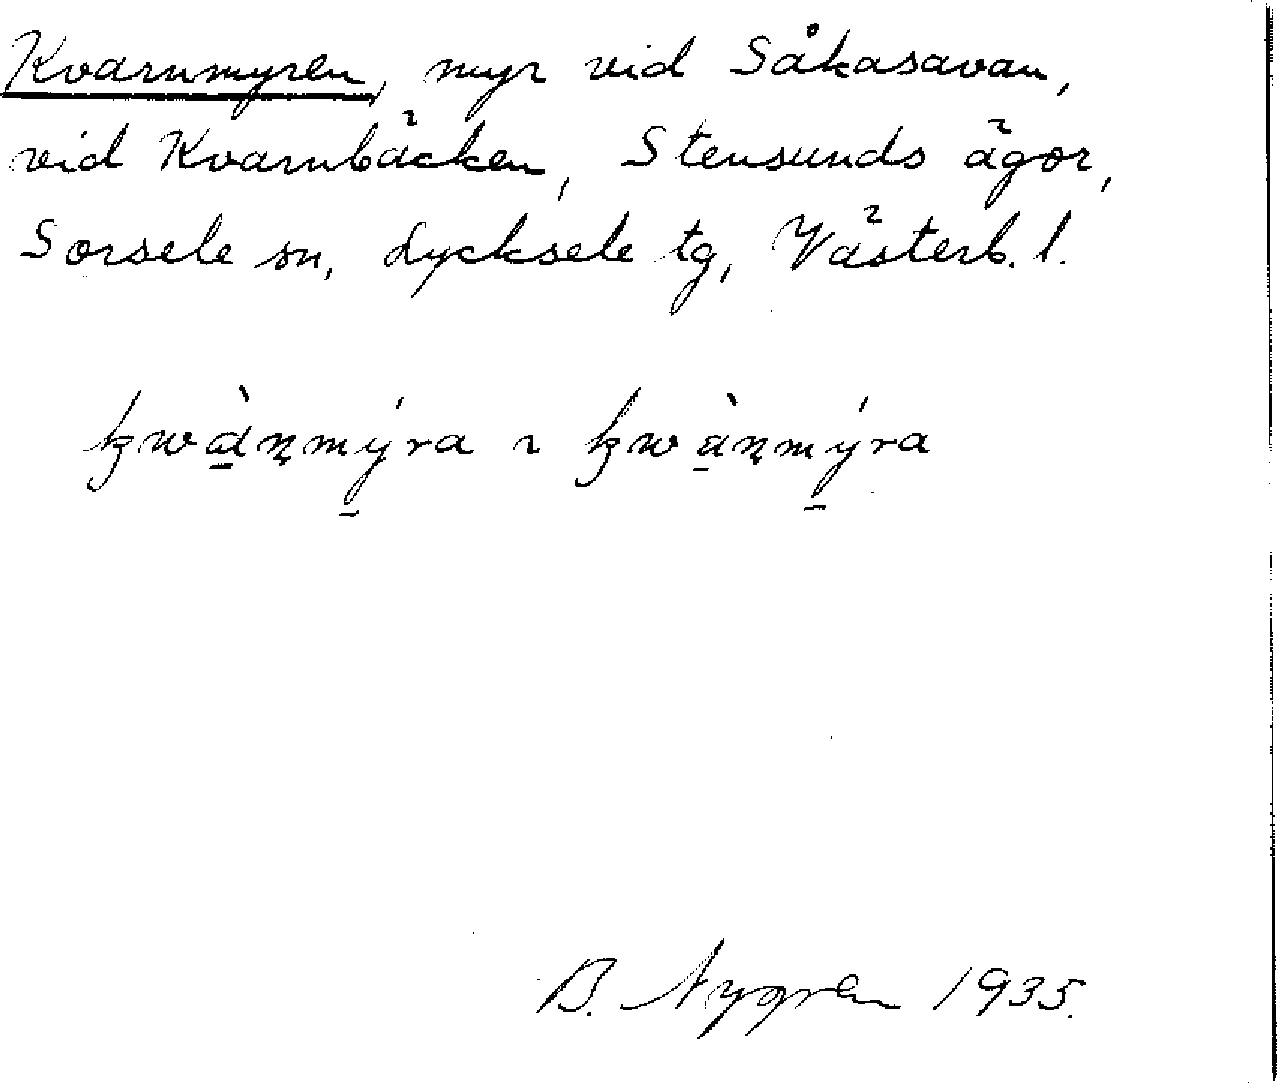 Kvarnmyren, myr vid Såkasavan,
vid Kvarnbäcken, Stensunds ägor,
Sorsele sn, Lycksele tg, Västerb. l.
kwàṇmýra ~ kwàṇmýra
B. Nygren 1935.